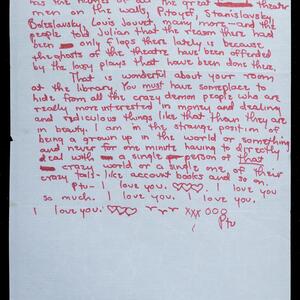 has the images of all the great theatre
men on the walls, Pitoyet, Stanislavsky,
Boleslavsky, Louis Jouvet, many more—and the
people told Julian that the reason there had
been only flops there lately is because
the ghosts of the theatre have been offended
by the lazy plays that have been done there.
That is wonderful about your room
at the library. You must have someplace to
hide from all the crazy demon people who are
really more interested in money and dealing
and ridiculous things like that than they are
in beauty. I am in the strange position of
being a grown up in the world or something
and never for one minute having to directly
deal with a single person of that
crazy world or a single one of their
crazy talk-like account books and so on.
Ptu- I love you. ♡♡♡♡. I love you
so much. I love you. I love you.
I love you. ♡♡♡ xxx 000
Ptu